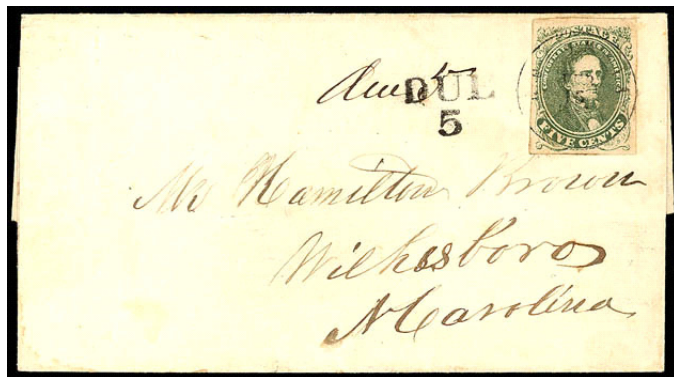 POSTAGE
FIVE CENTS
Due
DUE
5
Mr Hamilton Brown
Wilkesboro
N Carolina